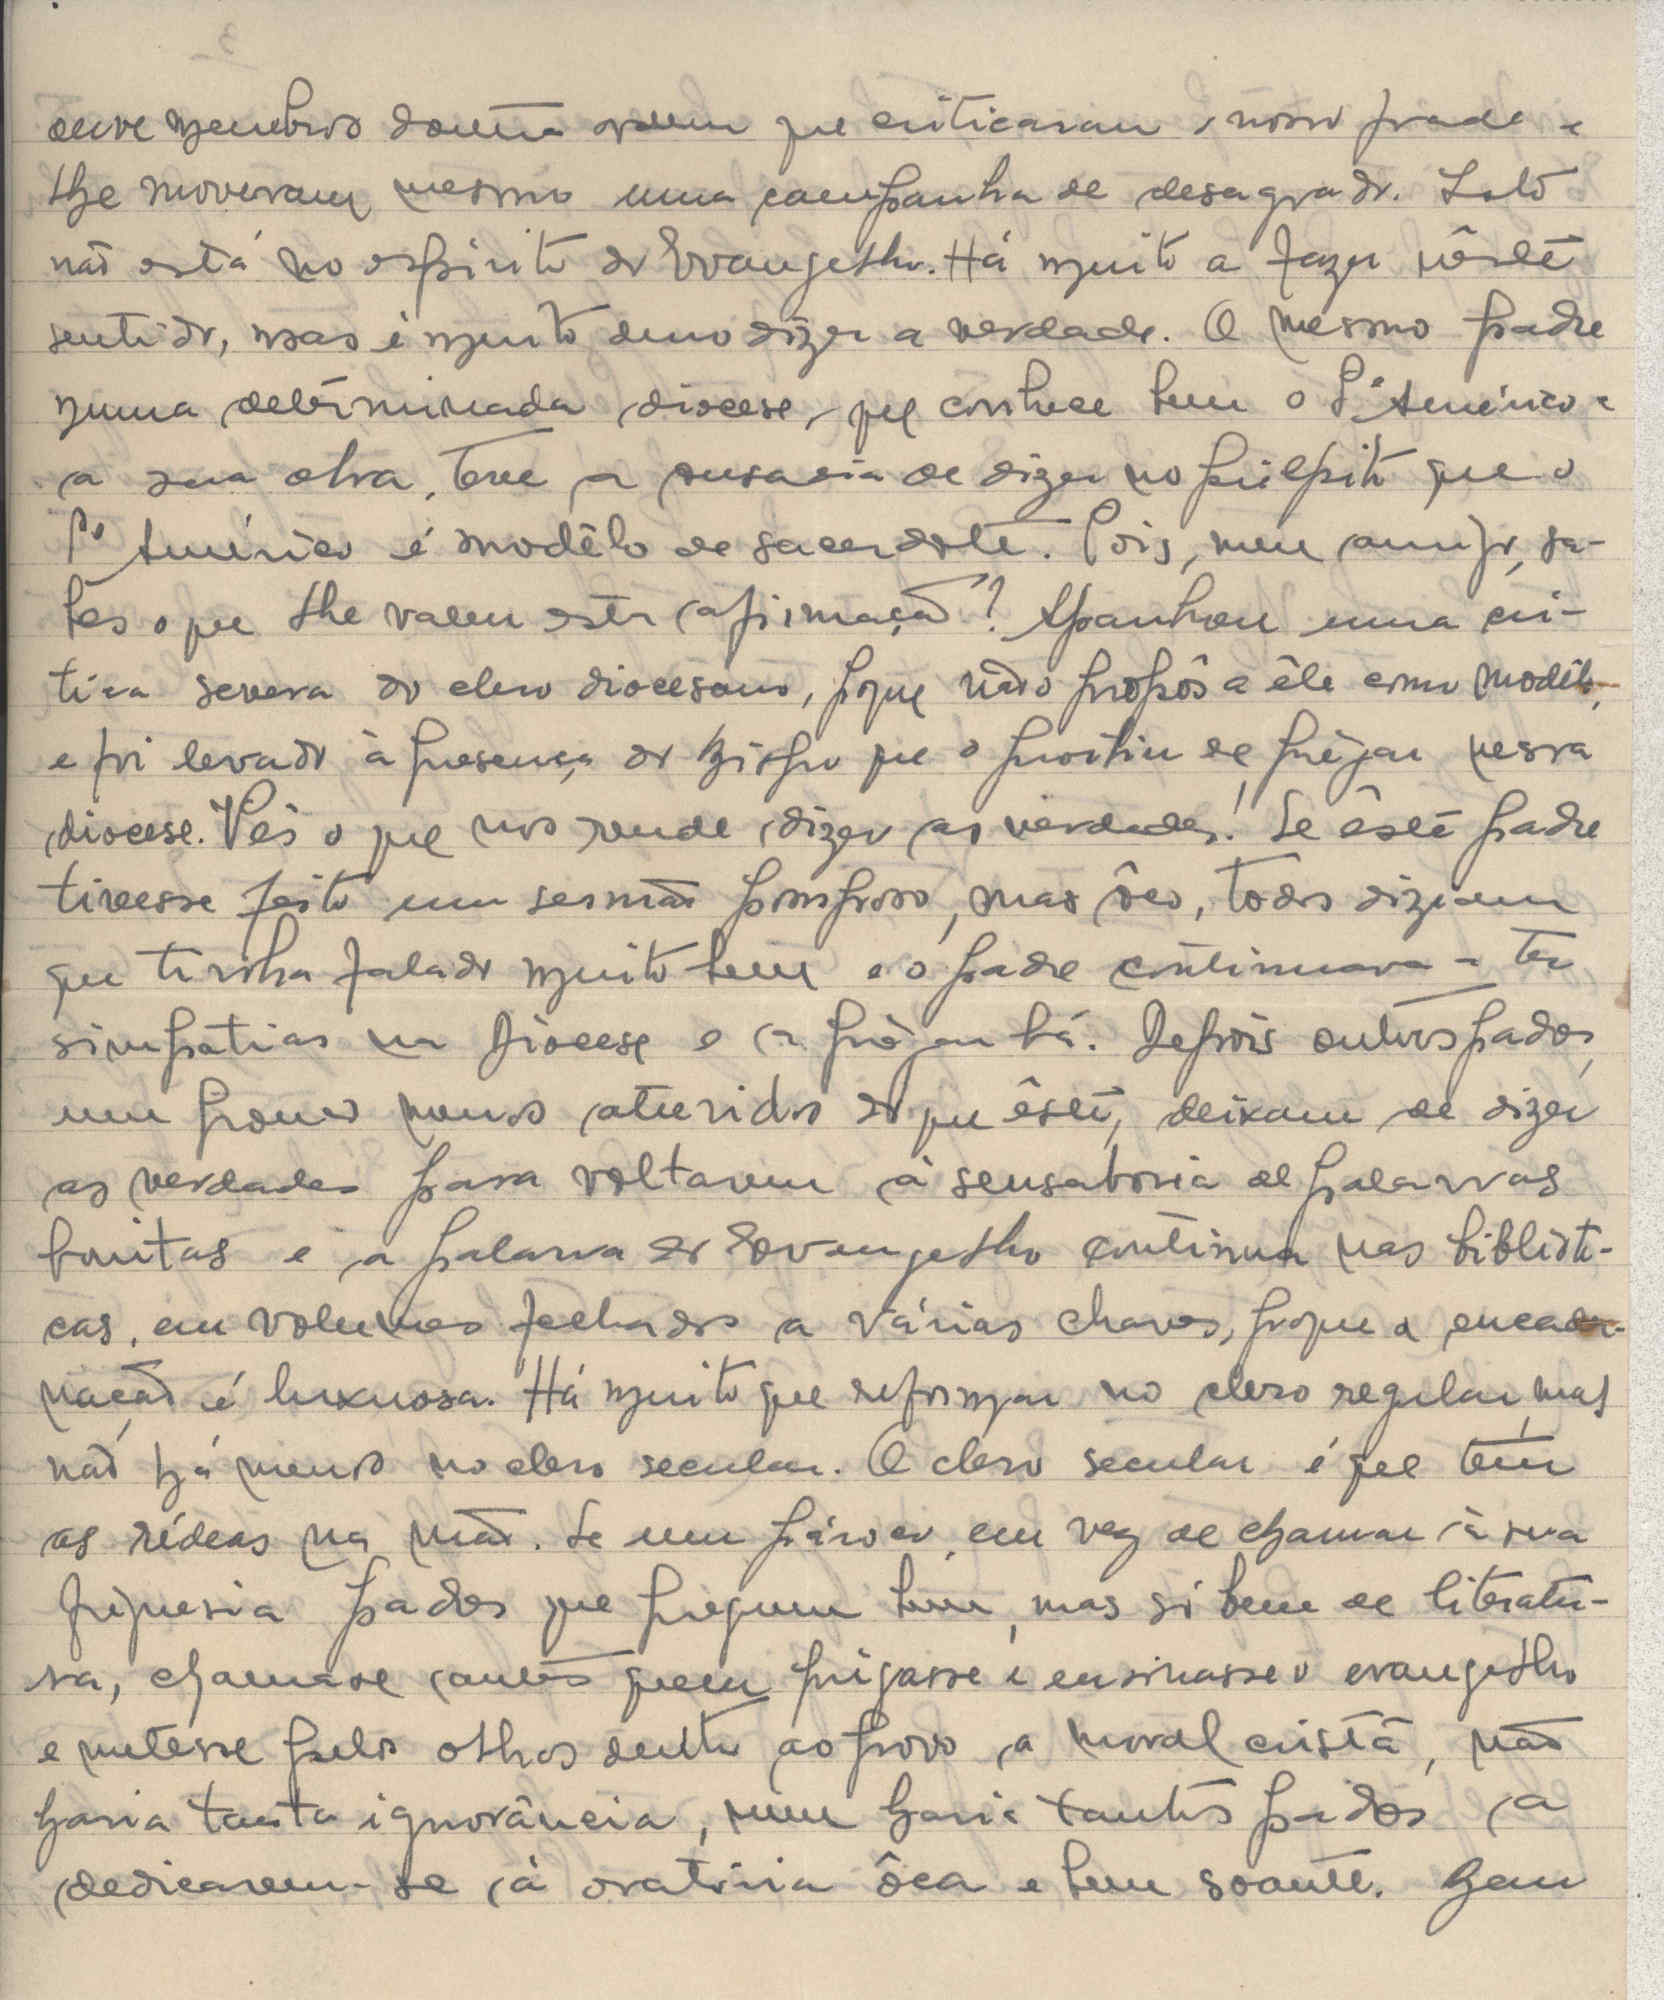 ouve membros doutra ordem que criticaram o nosso frade e
lhe moveram mesmo uma campanha de desagrado. Isto
não está no espírito do Evangelho. Há muito a fazer nêste
sentido, mas é muito duro dizer a verdade. O mesmo padre
numa determinada diocese, que conhece bem o Pe Américo e
a sua obra, teve a ousadia de dizer no púlpito que o
Pe Américo é modêlo de sacerdote. Pois, meu amigo, sa-
bes o que lhe valeu esta afirmação? Apanhou uma crí-
tica severa do clero diocesano, porque não o propôs a êle como modêlo,
e foi levado à presença do Bispo que o proibiu de prègar nessa
diocese. Vês o que nos rende dizer as verdades! Se êste padre
tivesse feito um sermão pomposo, mas ôco, todos diziam
que tinha falado muito bem e o padre continuava a ter
simpatias na Diocese e a prègar lá. Depois outros padres,
um pouco menos aturidos do que êste, deixam de dizer
as verdades para voltarem à sensaboria de palavras
bonitas e a palavra do Evangelho continua nas bibliote-
cas, em volumes fechados a várias chaves, porque a encader-
nação é luxuosa. Há muito que reformar no clero regular, mas
não há menos no clero secular. O clero secular é que tem
as rédeas na mão. Se um pároco, em vez de chamar à sua
freguesia padres que preguem bem, mas só bem de literatu-
ra, chamasse antes quem prègasse e ensinasse o evangelho
e metesse pelos olhos dentro ao povo a moral cristã, não
haria tanta ignorância, nem haria tantos padres a
dedicarem-se à oratória ôca e bem soante. Hau